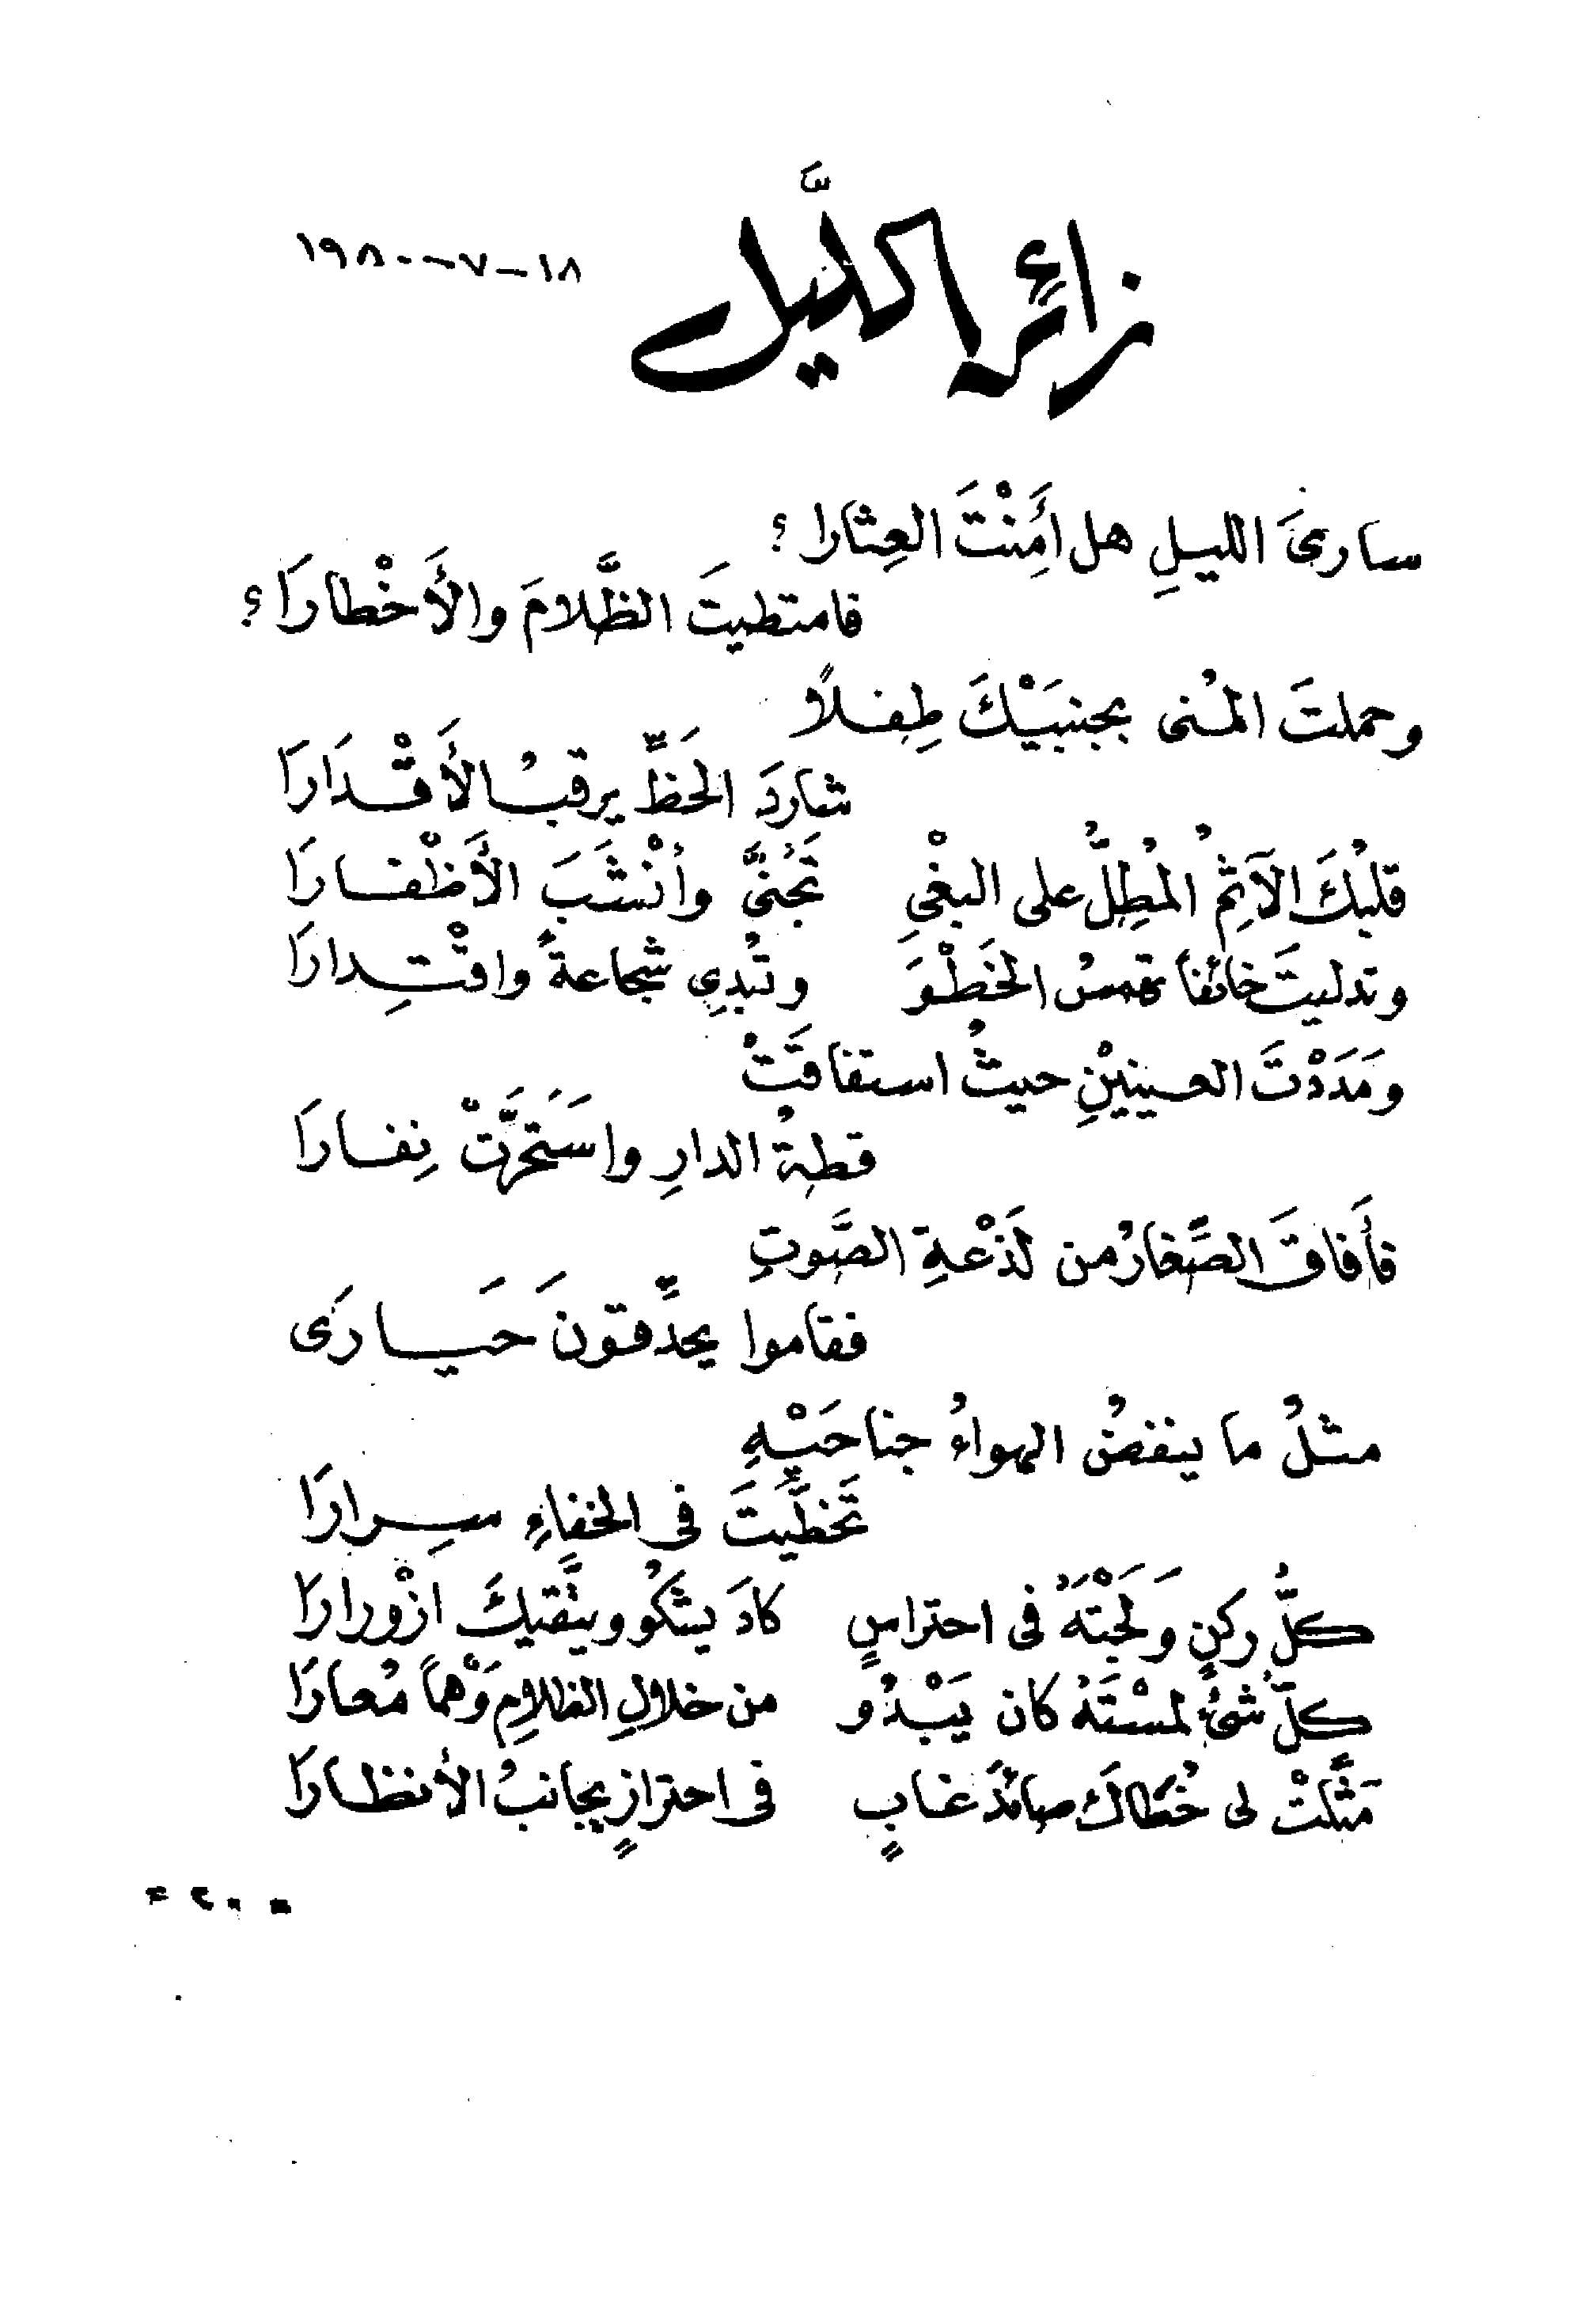 زائر الليَّل
١٨-٧-١٩٨٠
سارىَ الليلِ هل أَمِنْتَ العِثارا ؟
فامتطيتَ الظَّلامَ والأَخْطارَا ؟
وحملتَ المُنى بجنبَيْكَ طِفلاً
شاردَ الحَظِّ يرقبُ الأَقْدَارَا
قلبُكَ الآثِمُ المُطِلُّ على البغْىِ تَجَنَّى وأنْشَبَ الأَظْفارَا
وتدليتَ خائفاً تهمسُ الخَطْوَ وتُبدِى شجاعةً واقْتِدارَا
ومَدَدْتَ العينيْنِ حيثُ استفاقَتْ
قطةُ الدارِ واسَتَحَرَّتْ نِفارَا
فأَفاقَ الصِّغارُ من لَذْعةِ الصَّوتِ
فقاموا يحدِّقونَ حَيارَى
مثلُ ما ينفضُ الهواءُ جناحَيْهِ
تَخطَّيتَ فى الخفاءِ سِرارَا
كلُّ ركنٍ وَلَجْتَهُ فى احتراسٍ كادَ يشكُو ويتَّقيكَ ازْورارَا
كلُّ شئٍ لمسْتَهُ كان يَبْدُو من خلالِ الظلامِ وَهْماً مُعارَا
مَثَّلتْ لى خُطَاكَ صائدَ غابٍ فى احترازٍ يجانبُ الأنظارَا
= ٢٠٠ =